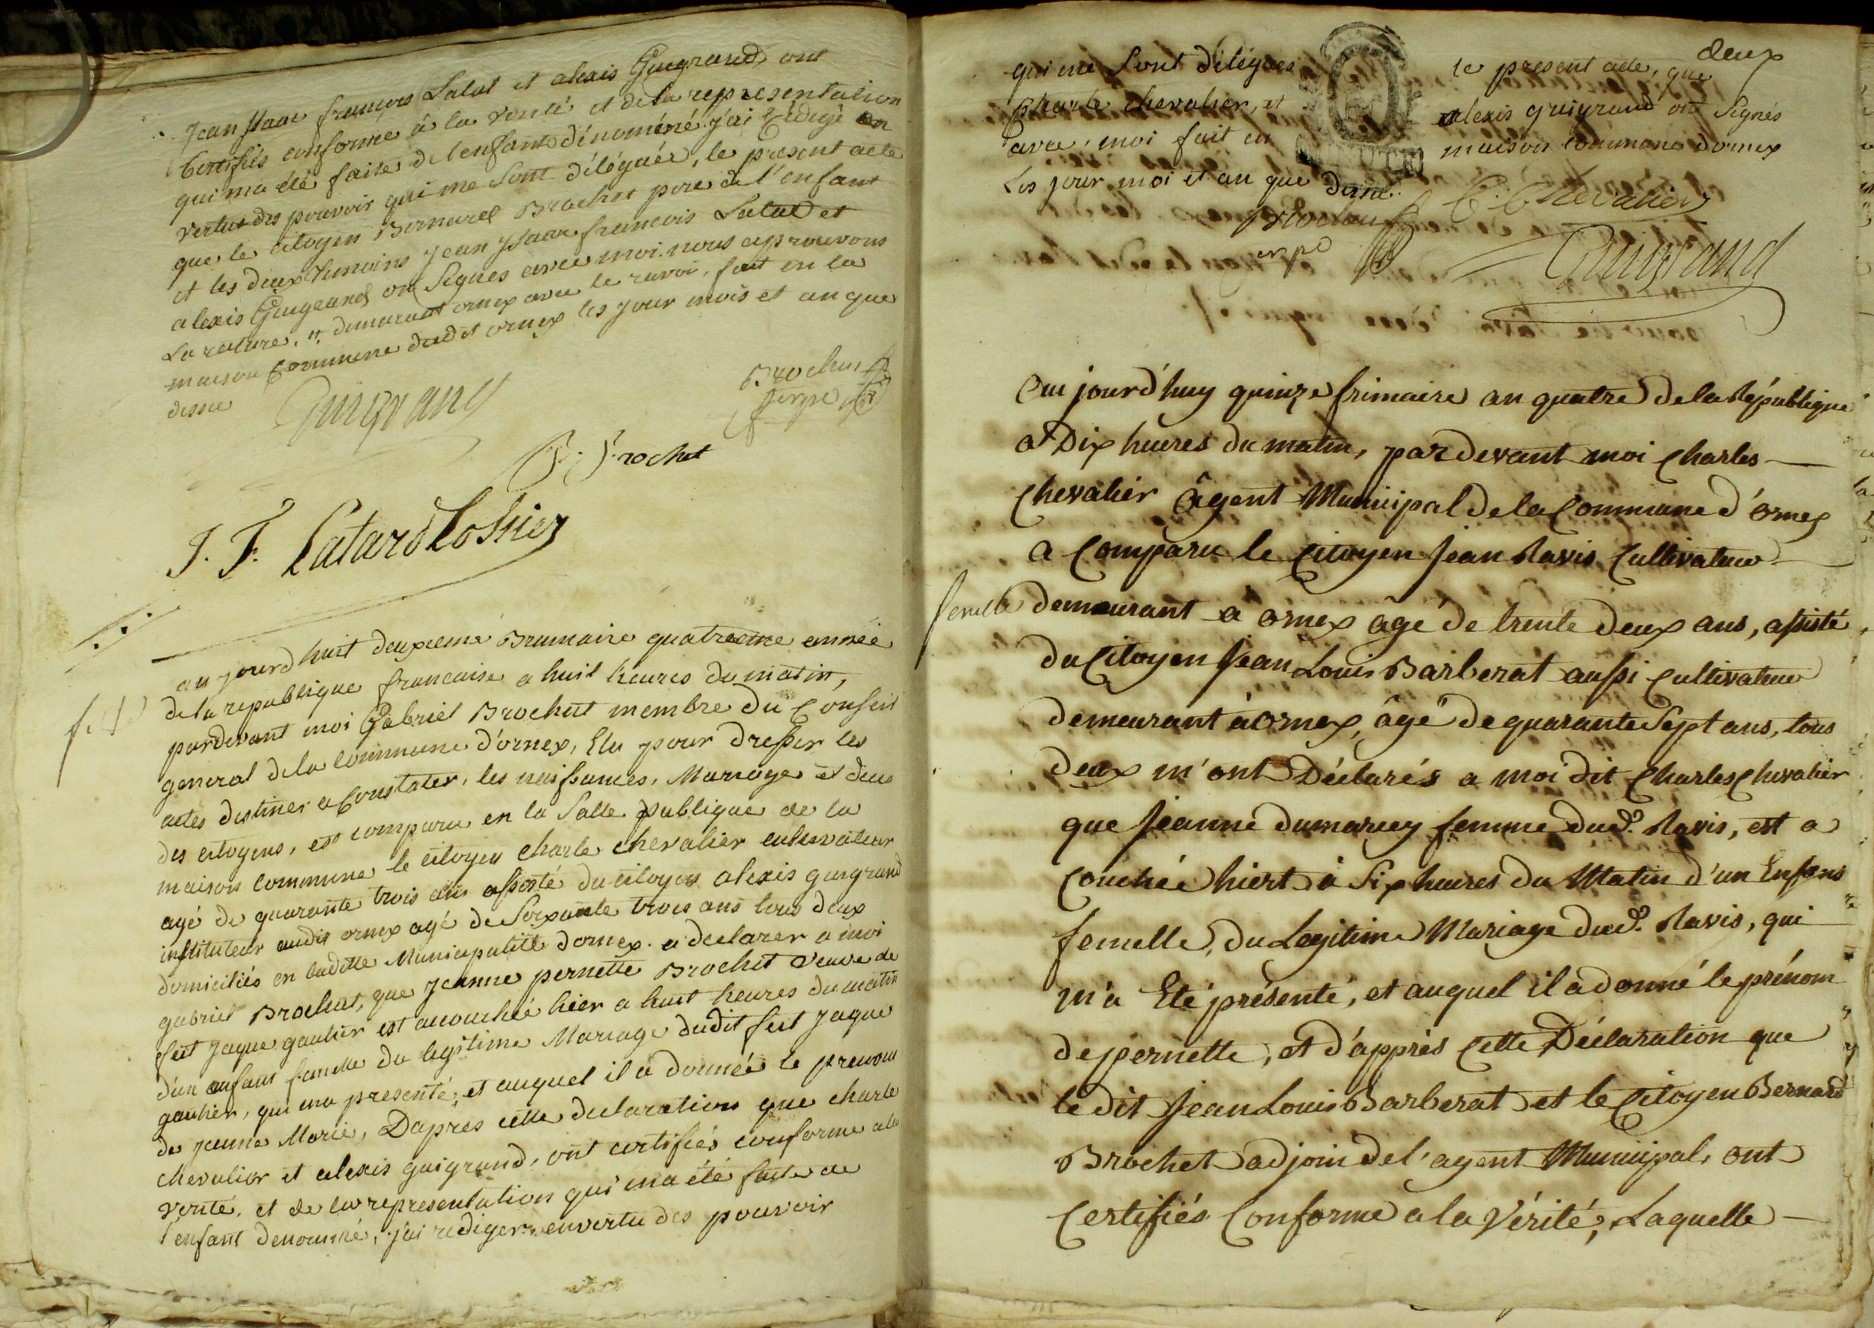 Jean Isaac françois Latal et alexis Guigrand, ont
Certifiés conforme à la verité et de la representation
qui ma été faite de l'enfant dénoméné j'ai rédigé en
vertu des pouvoir qui me sont délégués, le present acte
que le citoyen Bernard Brochet pere de l'enfant
et les deux temoins jean ysaac francois Latal et
alexis Guigrand on signés avec moi. nous aprouvons
La rature, demeurant ornex avec le ravoir, fait en la
maison Commune dudit ornex les jour mois et an que
dessus
Guigrand
Brochut
B: Brochet
J. F. Latard Lossier
au jourd huit deuxieme Brumaire quatrieme année
de la republique francaise a huit heures du matin,
pardevant moi Gabriel Brochut membre du Conseil
general de la Commune d'ornex, Elu pour dresser les
actes destiner a Constater, les naissances, Mariage et deces
des citoyens, est comparu en la Salle publique de la
maison commune le citoyen charle chevalier cultivateur
agé de quarante trois ans assisté du citoyen alexis guigrand
instituteur audit ornex agé de Soixante trois ans tous deux
domiciliés en ladite Municipalité dornex. a declarer a moi
gabriel Brochut, que jeanne pernette Brochet veuve de
feut jaque gautier est accouchée hier a huit heures du matin
d'un enfant femelle du legitime Mariage dudit feut jaque
gautier, qui ma presenté, et auquel il a donnée le prenom
de jeanne Marie, Daprès cette declaration que charle
chevalier et alexis guigrand, ont certifiés conforme a la
verité, et de la representation qui ma été faite de
l'enfant denommé, j'ai rediger en vertu des pouvoir
deux
qui me Sont délégués le present acte, que
Charle chevalier, et alexis guigrand ont Signés
avec, moi fait en maison commune dornex
Les jour moi et an que dessus
Brochut C: Chevalier
Guigrand
Aujourd'huy quinze frimaire an quatre de la République
a Dix heures du matin, pardevant moi Charles
Chevalier Âgent Municipal de la Commune d'ornex
a Comparu le Citoyen Jean Ravis Cultivateur
femelle demeurant a ornex âgé de trente deux ans, assisté
du Citoyen Jean Louis Barberat aussi Cultivateur
demeurant à ornex, âgé de quarante Sept ans, tous
deux m'ont Déclarés a moi dit Charles Chevalier
que Jeanne Dumarcey femme dud.t Ravis, est a
Couchée hiert à Six heures du Matin d'un Enfans
femelle, du Legitime Mariage dud.t Ravis, qui
m'a Eté présenté, et auquel il a donné le prénom
de pernette, et d'apprès Cette Déclaration que
le dit Jean Louis Barberat et le Citoyen Bernard
Brochet adjoin de l'agent Municipal, ont
Certifiés Conforme a la Vérité, Laquelle